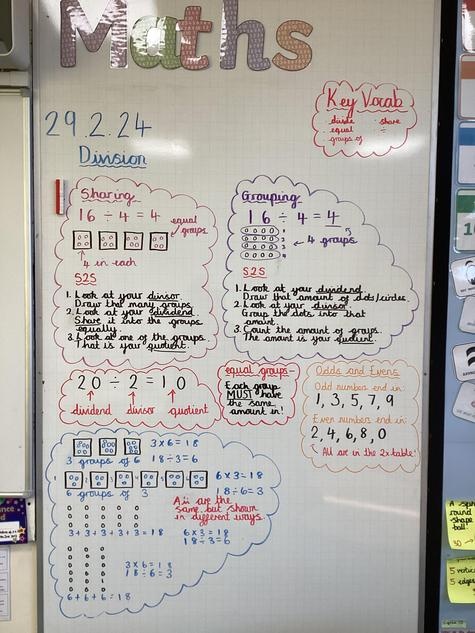 Maths
29.2.24
Division
Key Vocab
divide · share
equal ÷
groups of
Sharing
16 ÷ 4 = 4
equal
groups
4 in each
S2S
1. Look at your divisor
Draw this many groups.
2. Look at your dividend.
Share it into the groups
equally.
3. Look at one of the groups
That is your quotient.
Grouping
16 ÷ 4 = 4
4 groups
S2S
1. Look at your dividend.
Draw that amount of dots/circles.
2. Look at your divisor
Group the dots into that
amount.
3. Count the amount of groups.
The amount is your quotient.
20 ÷ 2 = 10
dividend divisor quotient
equal groups-
Each group
MUST have
the same
amount in!
Odds and Evens
Odd numbers end in:
1, 3, 5, 7, 9
Even numbers end in:
2, 4, 6, 8, 0
All are in the 2x table!
3x6=18
3 groups of 6 18÷3=6
6x3=18
6 groups of 3 18÷6=3
All are the
same but shown
in different ways.
3+3+3+3+3+3=18
6x3=18
18÷3=6
3x6=18
18÷6=3
6+6+6=18
round
shape
ball
30
5
5